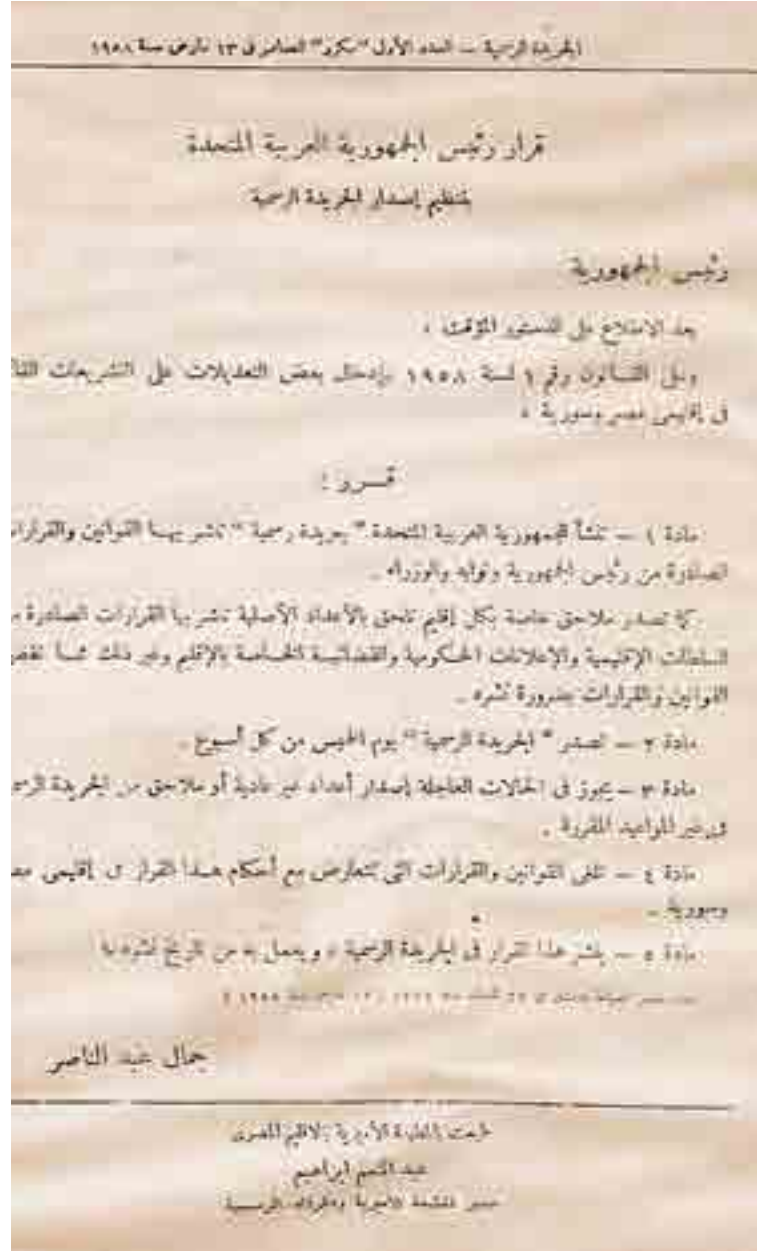 الجريدة الرسمية — العدد الأول "مكرر" الصادر في ١٣ مارس سنة ١٩٥٨
قرار رئيس الجمهورية العربية المتحدة
بتنظيم إصدار الجريدة الرسمية
رئيس الجمهورية
بعد الاطلاع على الدستور المؤقت ،
وعلى القانون رقم ١ لسنة ١٩٥٨ بإدخال بعض التعديلات على التشريعات
فى إقليمى مصر وسورية ،
قــرر :
مادة ١ — تنشأ للجمهورية العربية المتحدة " جريدة رسمية " تنشر بهـا القوانين والقرارات
الصادرة من رئيس الجمهورية ونوابه والوزراء .
كما تصدر ملاحق خاصة بكل إقليم تلحق بالأعداد الأصلية تنشر بها القرارات الصادرة
السلطات الإقليمية والإعلانات الحكومية والقضائيـة الخـاصة بالإقليم وغير ذلك ممـا
القوانين والقرارات بضرورة نشره .
مادة ٢ — تصدر " الجريدة الرسمية " يوم الخميس من كل أسبوع .
مادة ٣ — يجوز فى الحالات العاجلة إصدار أعداد غير عادية أو ملاحق من الجريدة
فى غير المواعيد المقررة .
مادة ٤ — تلغى القوانين والقرارات التى تتعارض مع أحكام هـذا القرار فى إقليمى
وسورية .
مادة ٥ — ينشر هذا القرار فى الجريدة الرسمية ، ويعمل به من تاريخ نشره ما
جمال عبد الناصر
طبعت بالمطبعة الأميرية بالاقليم المصرى
عبد المنعم ابراهيم
مدير المطبعة الأميرية